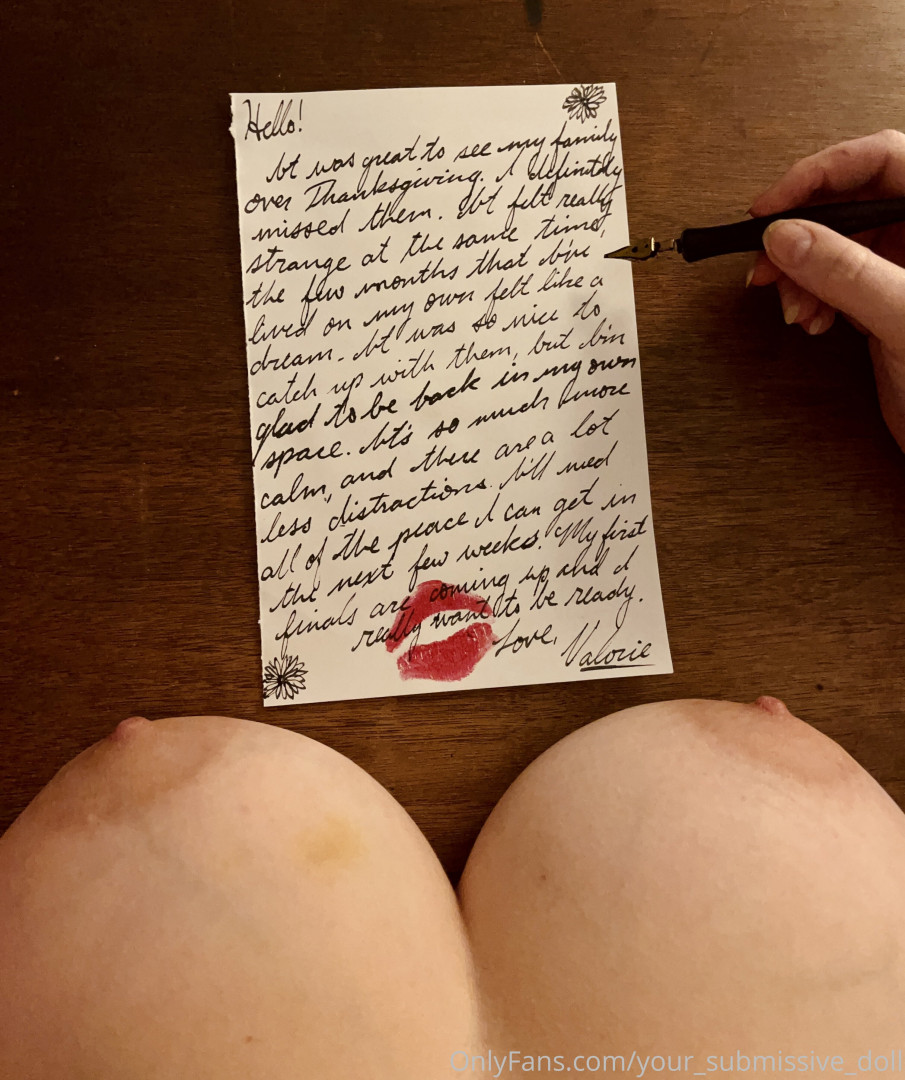 Hello!
It was great to see my family
over Thanksgiving. I definitely
missed them. It felt really
strange at the same time,
the few months that I've
lived on my own felt like a
dream. It was so nice to
catch up with them, but I'm
glad to be back in my own
space. It's so much more
calm, and there are a lot
less distractions. I'll need
all of the peace I can get in
the next few weeks. My first
finals are coming up and I
really want to be ready.
Love,
Valorie
OnlyFans.com/your_submissive_doll